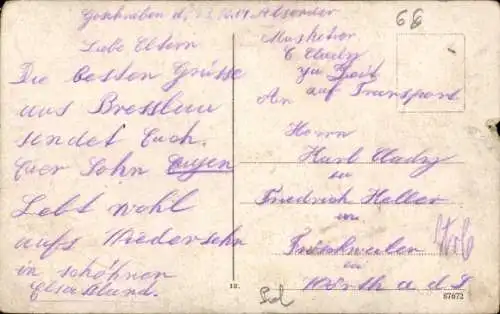 Geschrieben d. 13. 10. 14 Absender
Liebe Eltern
Die besten Grüsse
aus Bresslau
sendet Euch.
Euer Sohn Eugen
Lebt wohl
aufs Wiedersehn
in schöhnen
Elsassland.
66
Musketier
E Clady
zu Zeit
auf Transport
An
Herrn
Karl Clady
Friedrich Heller
in
Fröschweiler
Wörth a d S
18.
87672